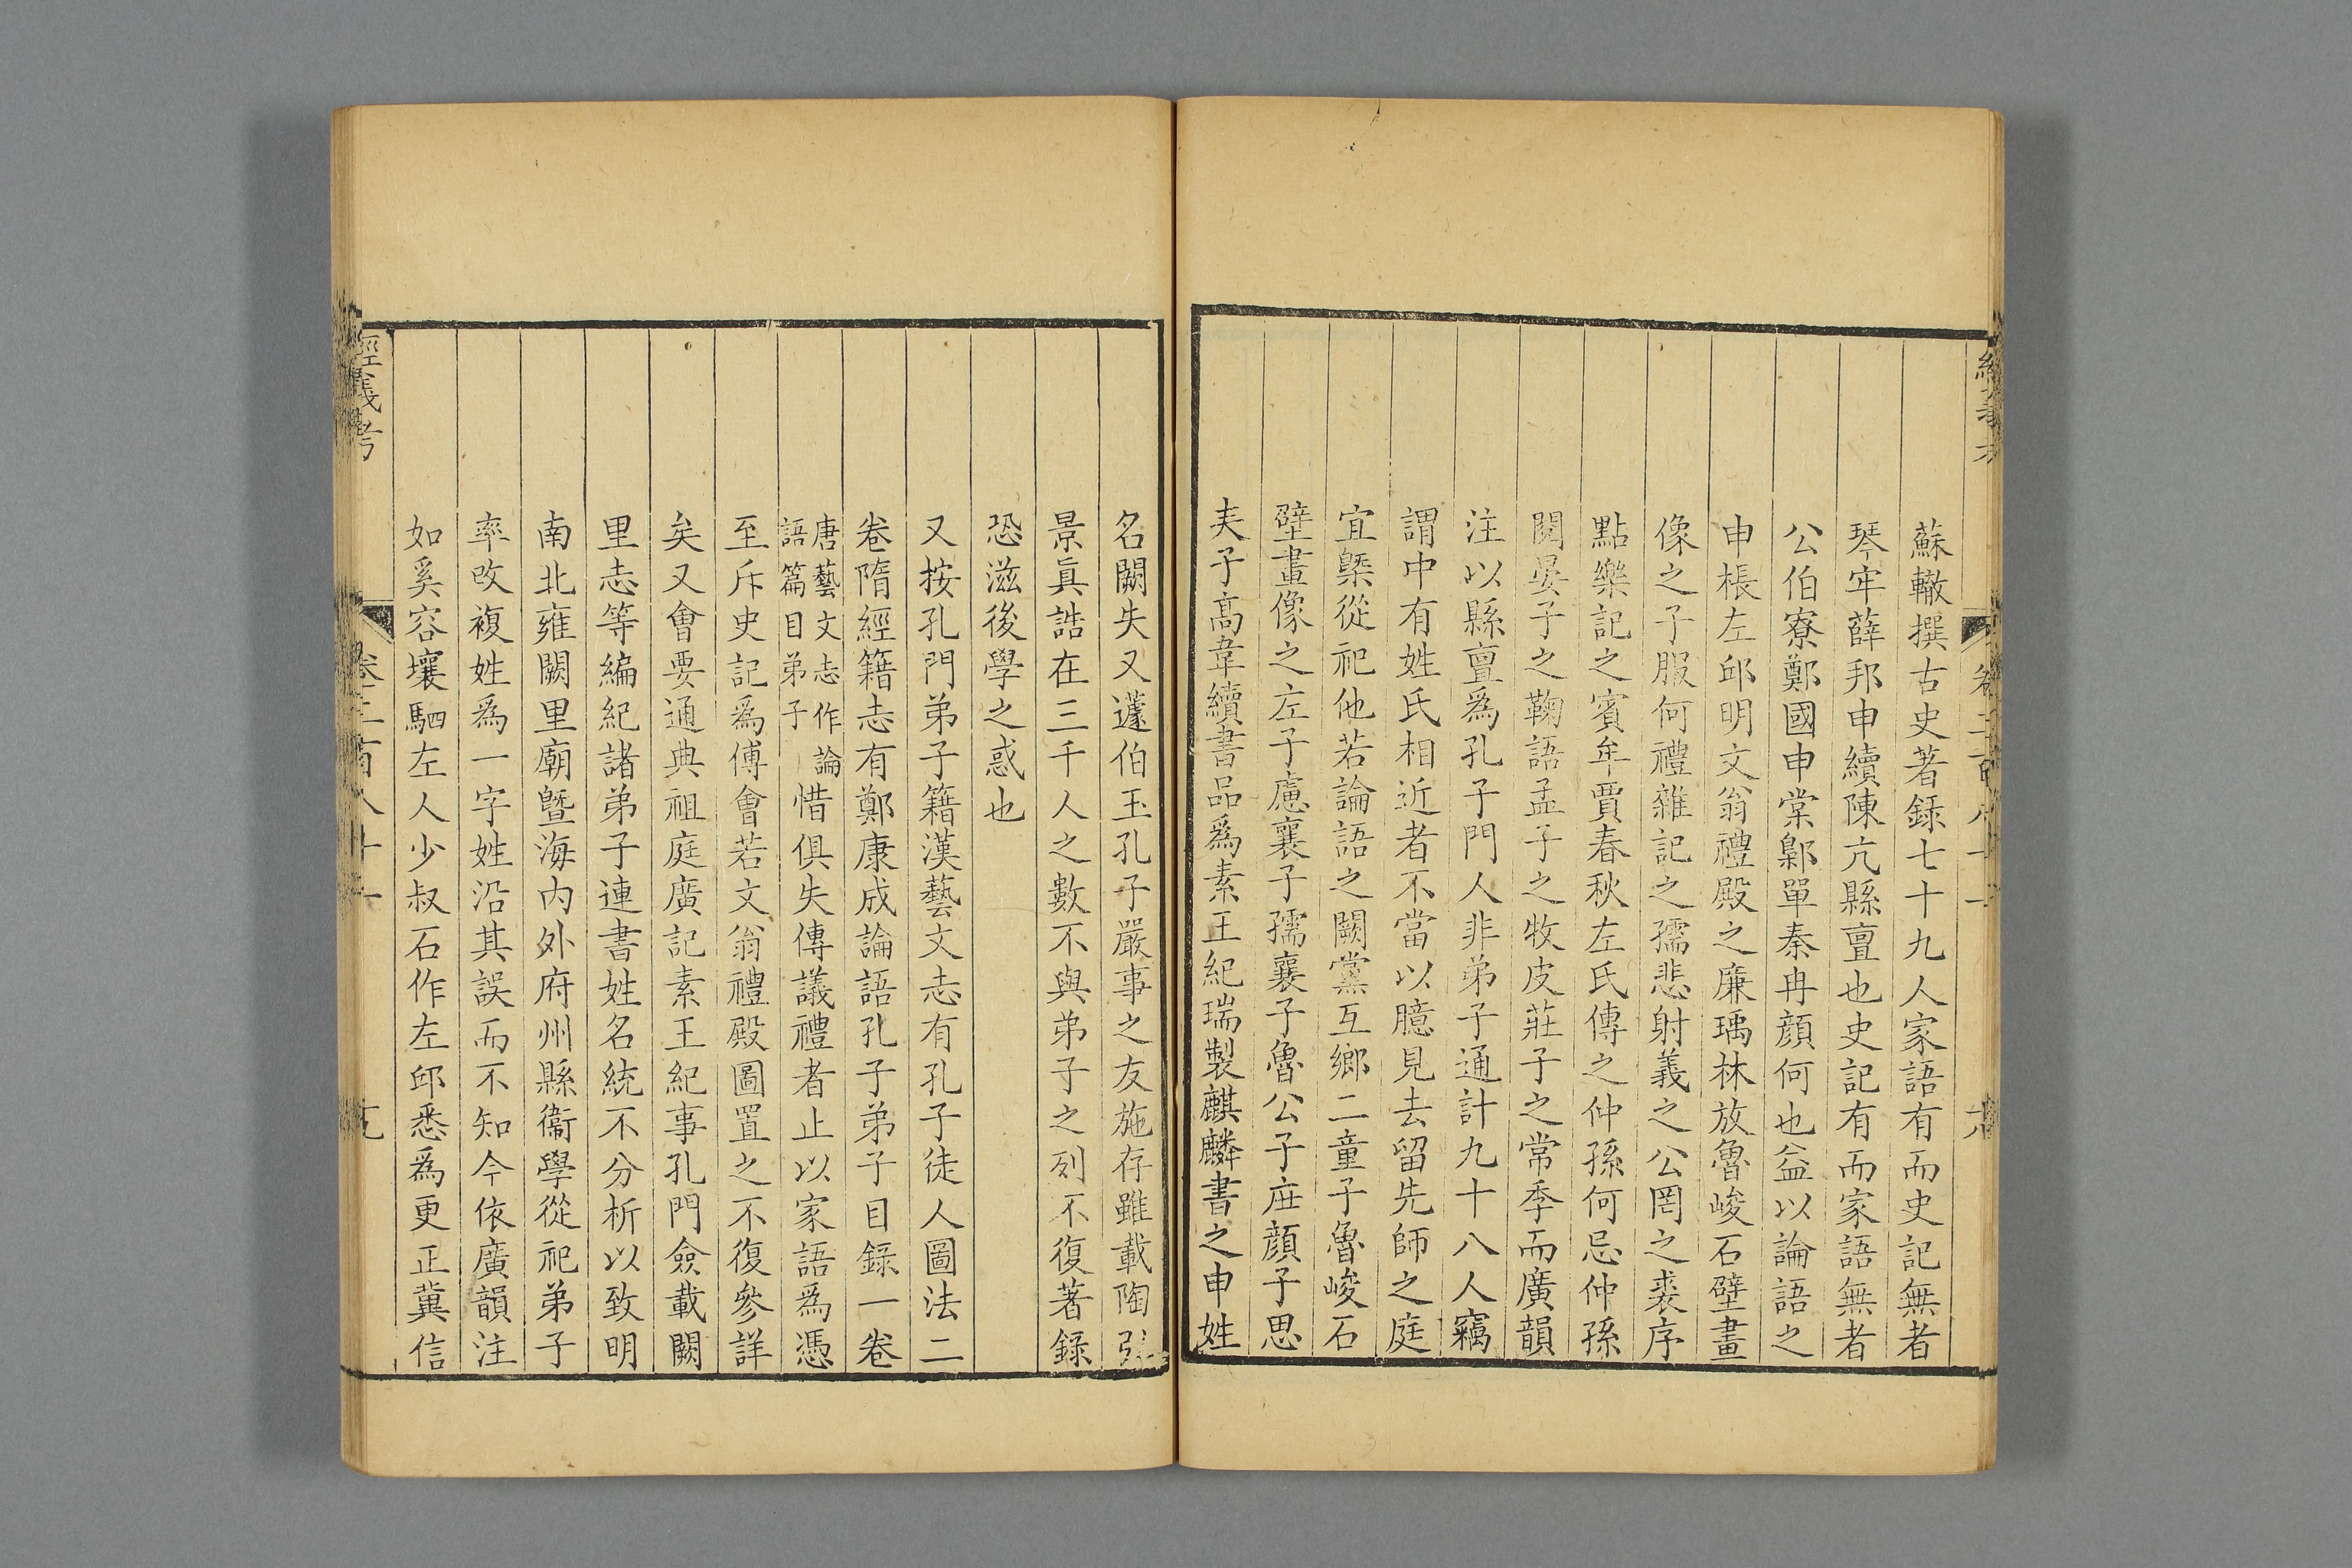 蘇轍撰古史著錄七十九人家語有而史記無者
琴牢薛邦申續陳亢縣亶也史記有而家語無者
公伯寮鄭國申棠鄡單秦冉顏何也益以論語之
申棖左邱明文翁禮殿之廉瑀林放魯峻石壁畫
像之子服何禮雜記之孺悲射義之公罔之裘序
點樂記之賓牟賈春秋左氏傳之仲孫何忌仲孫
閱晏子之鞠語孟子之牧皮莊子之常季而廣韻
注以縣亶爲孔子門人非弟子通計九十八人竊
謂中有姓氏相近者不當以臆見去留先師之庭
宜槩從祀他若論語之闕黨互鄉二童子魯峻石
壁畫像之左子慮襄子孺襄子魯公子庄顏子思
夫子髙韋續書品爲素王紀瑞製麒麟書之申姓
名闕失又蘧伯玉孔子嚴事之友施存雖載陶弘
景眞誥在三千人之數不與弟子之列不復著錄
恐滋後學之惑也
又按孔門弟子籍漢藝文志有孔子徒人圖法二
卷隋經籍志有鄭康成論語孔子弟子目錄一卷
唐藝文志作論
語篇目弟子
惜俱失傳議禮者止以家語爲憑
至斥史記爲傅會若文翁禮殿圖置之不復參詳
矣又會要通典祖庭廣記素王紀事孔門僉載闕
里志等編紀諸弟子連書姓名統不分析以致明
南北雍闕里廟曁海内外府州縣衞學從祀弟子
率改複姓爲一字姓沿其誤而不知今依廣韻注
如奚容壤駟左人少叔石作左邱悉爲更正冀信
經義考
卷二百八十一